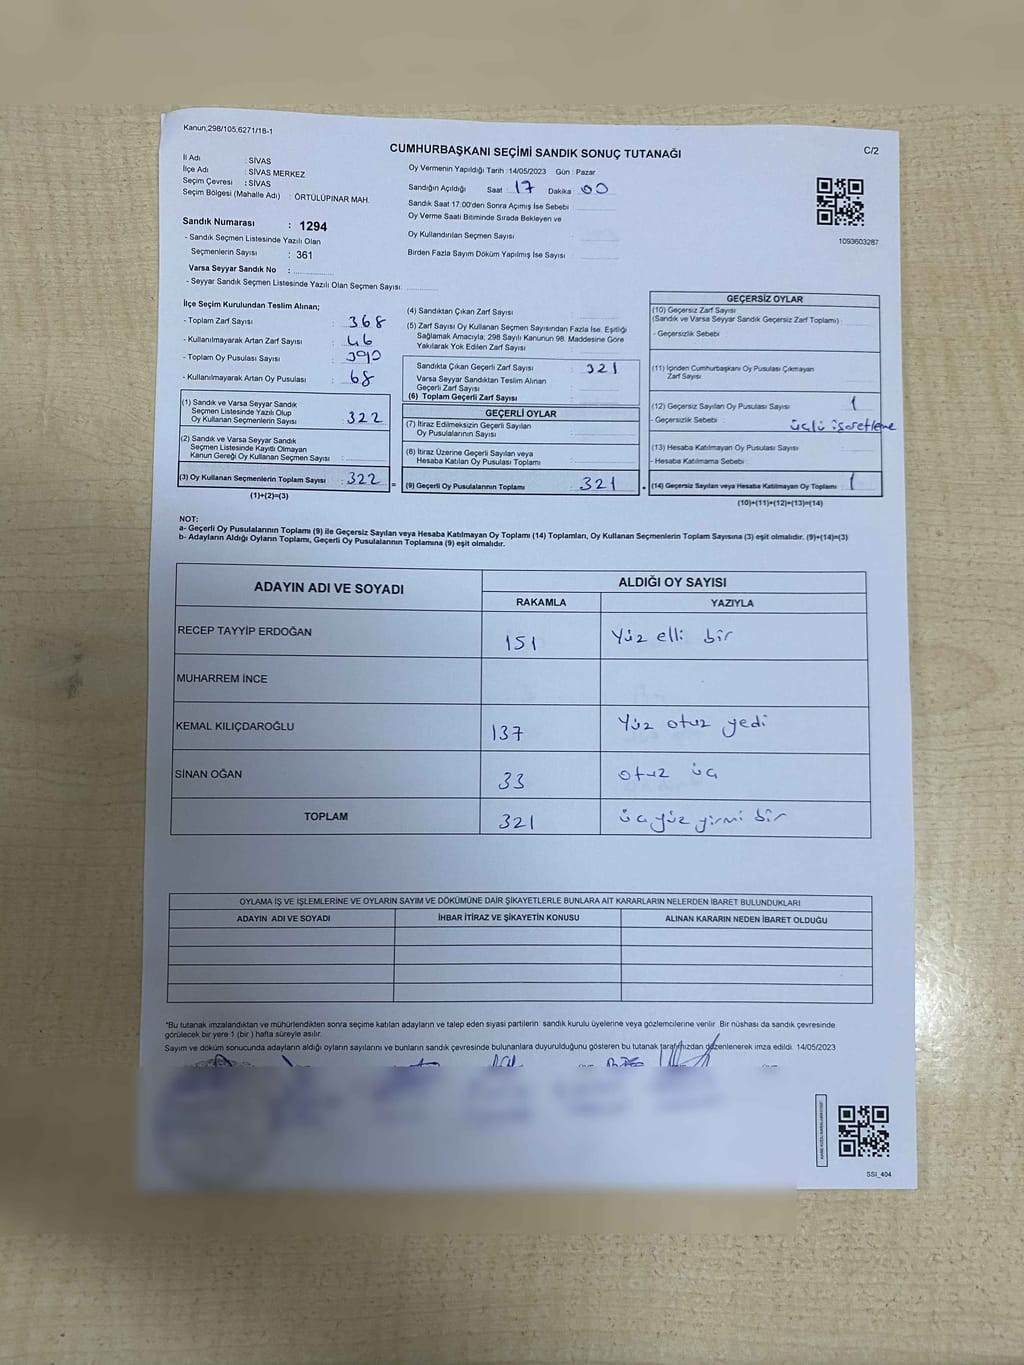 Kanun;298/105,6271/18-1
C/2
CUMHURBAŞKANI SEÇİMİ SANDIK SONUÇ TUTANAĞI
İl Adı : SİVAS
İlçe Adı : SİVAS MERKEZ
Seçim Çevresi : SİVAS
Seçim Bölgesi (Mahalle Adı) : ÖRTÜLÜPINAR MAH.
Oy Vermenin Yapıldığı Tarih :14/05/2023 Gün : Pazar
Sandığın Açıldığı Saat : 17 Dakika : 00
Sandık Saat 17:00'den Sonra Açımış İse Sebebi :
Oy Verme Saati Bitiminde Sırada Bekleyen ve
Oy Kullandırılan Seçmen Sayısı :
Birden Fazla Sayım Döküm Yapılmış İse Sayısı :
1093603287
Sandık Numarası : 1294
- Sandık Seçmen Listesinde Yazılı Olan
Seçmenlerin Sayısı : 361
Varsa Seyyar Sandık No :
- Seyyar Sandık Seçmen Listesinde Yazılı Olan Seçmen Sayısı:
İlçe Seçim Kurulundan Teslim Alınan;
- Toplam Zarf Sayısı : 368
- Kullanılmayarak Artan Zarf Sayısı : 46
- Toplam Oy Pusulası Sayısı : 390
- Kullanılmayarak Artan Oy Pusulası : 68
(1) Sandık ve Varsa Seyyar Sandık
Seçmen Listesinde Yazılı Olup
Oy Kullanan Seçmenlerin Sayısı : 322
(2) Sandık ve Varsa Seyyar Sandık
Seçmen Listesinde Kayıtlı Olmayan
Kanun Gereği Oy Kullanan Seçmen Sayısı :
(3) Oy Kullanan Seçmenlerin Toplam Sayısı : 322
(1)+(2)=(3)
=
(4) Sandıktan Çıkan Zarf Sayısı :
(5) Zarf Sayısı Oy Kullanan Seçmen Sayısından Fazla İse, Eşitliği
Sağlamak Amacıyla; 298 Sayılı Kanunun 98. Maddesine Göre
Yakılarak Yok Edilen Zarf Sayısı :
Sandıkta Çıkan Geçerli Zarf Sayısı : 321
Varsa Seyyar Sandıktan Teslim Alınan
Geçerli Zarf Sayısı :
(6) Toplam Geçerli Zarf Sayısı :
GEÇERLİ OYLAR
(7) İtiraz Edilmeksizin Geçerli Sayılan
Oy Pusulalarının Sayısı :
(8) İtiraz Üzerine Geçerli Sayılan veya
Hesaba Katılan Oy Pusulası Toplamı :
(9) Geçerli Oy Pusulalarının Toplamı : 321
+
GEÇERSİZ OYLAR
(10) Geçersiz Zarf Sayısı
(Sandık ve Varsa Seyyar Sandık Geçersiz Zarf Toplamı) :
- Geçersizlik Sebebi :
(11) İçinden Cumhurbaşkanı Oy Pusulası Çıkmayan
Zarf Sayısı :
(12) Geçersiz Sayılan Oy Pusulası Sayısı : 1
- Geçersizlik Sebebi : üçlü işaretleme
(13) Hesaba Katılmayan Oy Pusulası Sayısı :
- Hesaba Katılmama Sebebi :
(14) Geçersiz Sayılan veya Hesaba Katılmayan Oy Toplamı : 1
(10)+(11)+(12)+(13)=(14)
NOT:
a- Geçerli Oy Pusulalarının Toplamı (9) ile Geçersiz Sayılan veya Hesaba Katılmayan Oy Toplamı (14) Toplamları, Oy Kullanan Seçmenlerin Toplam Sayısına (3) eşit olmalıdır. (9)+(14)=(3)
b- Adayların Aldığı Oyların Toplamı, Geçerli Oy Pusulalarının Toplamına (9) eşit olmalıdır.
ADAYIN ADI VE SOYADI ALDIĞI OY SAYISI
RAKAMLA YAZIYLA
RECEP TAYYİP ERDOĞAN 151 Yüz elli bir
MUHARREM İNCE
KEMAL KILIÇDAROĞLU 137 Yüz otuz yedi
SİNAN OĞAN 33 otuz üç
TOPLAM 321 üçyüz yirmi bir
OYLAMA İŞ VE İŞLEMLERİNE VE OYLARIN SAYIM VE DÖKÜMÜNE DAİR ŞİKAYETLERLE BUNLARA AİT KARARLARIN NELERDEN İBARET BULUNDUKLARI
ADAYIN ADI VE SOYADI İHBAR İTİRAZ VE ŞİKAYETİN KONUSU ALINAN KARARIN NEDEN İBARET OLDUĞU
*Bu tutanak imzalandıktan ve mühürlendikten sonra seçime katılan adayların ve talep eden siyasi partilerin sandık kurulu üyelerine veya gözlemcilerine verilir. Bir nüshası da sandık çevresinde
görülecek bir yere 1 (bir ) hafta süreyle asılır.
Sayım ve döküm sonucunda adayların aldığı oyların sayılarını ve bunların sandık çevresinde bulunanlara duyurulduğunu gösteren bu tutanak tarafımızdan düzenlenerek imza edildi. 14/05/2023
SSI_404